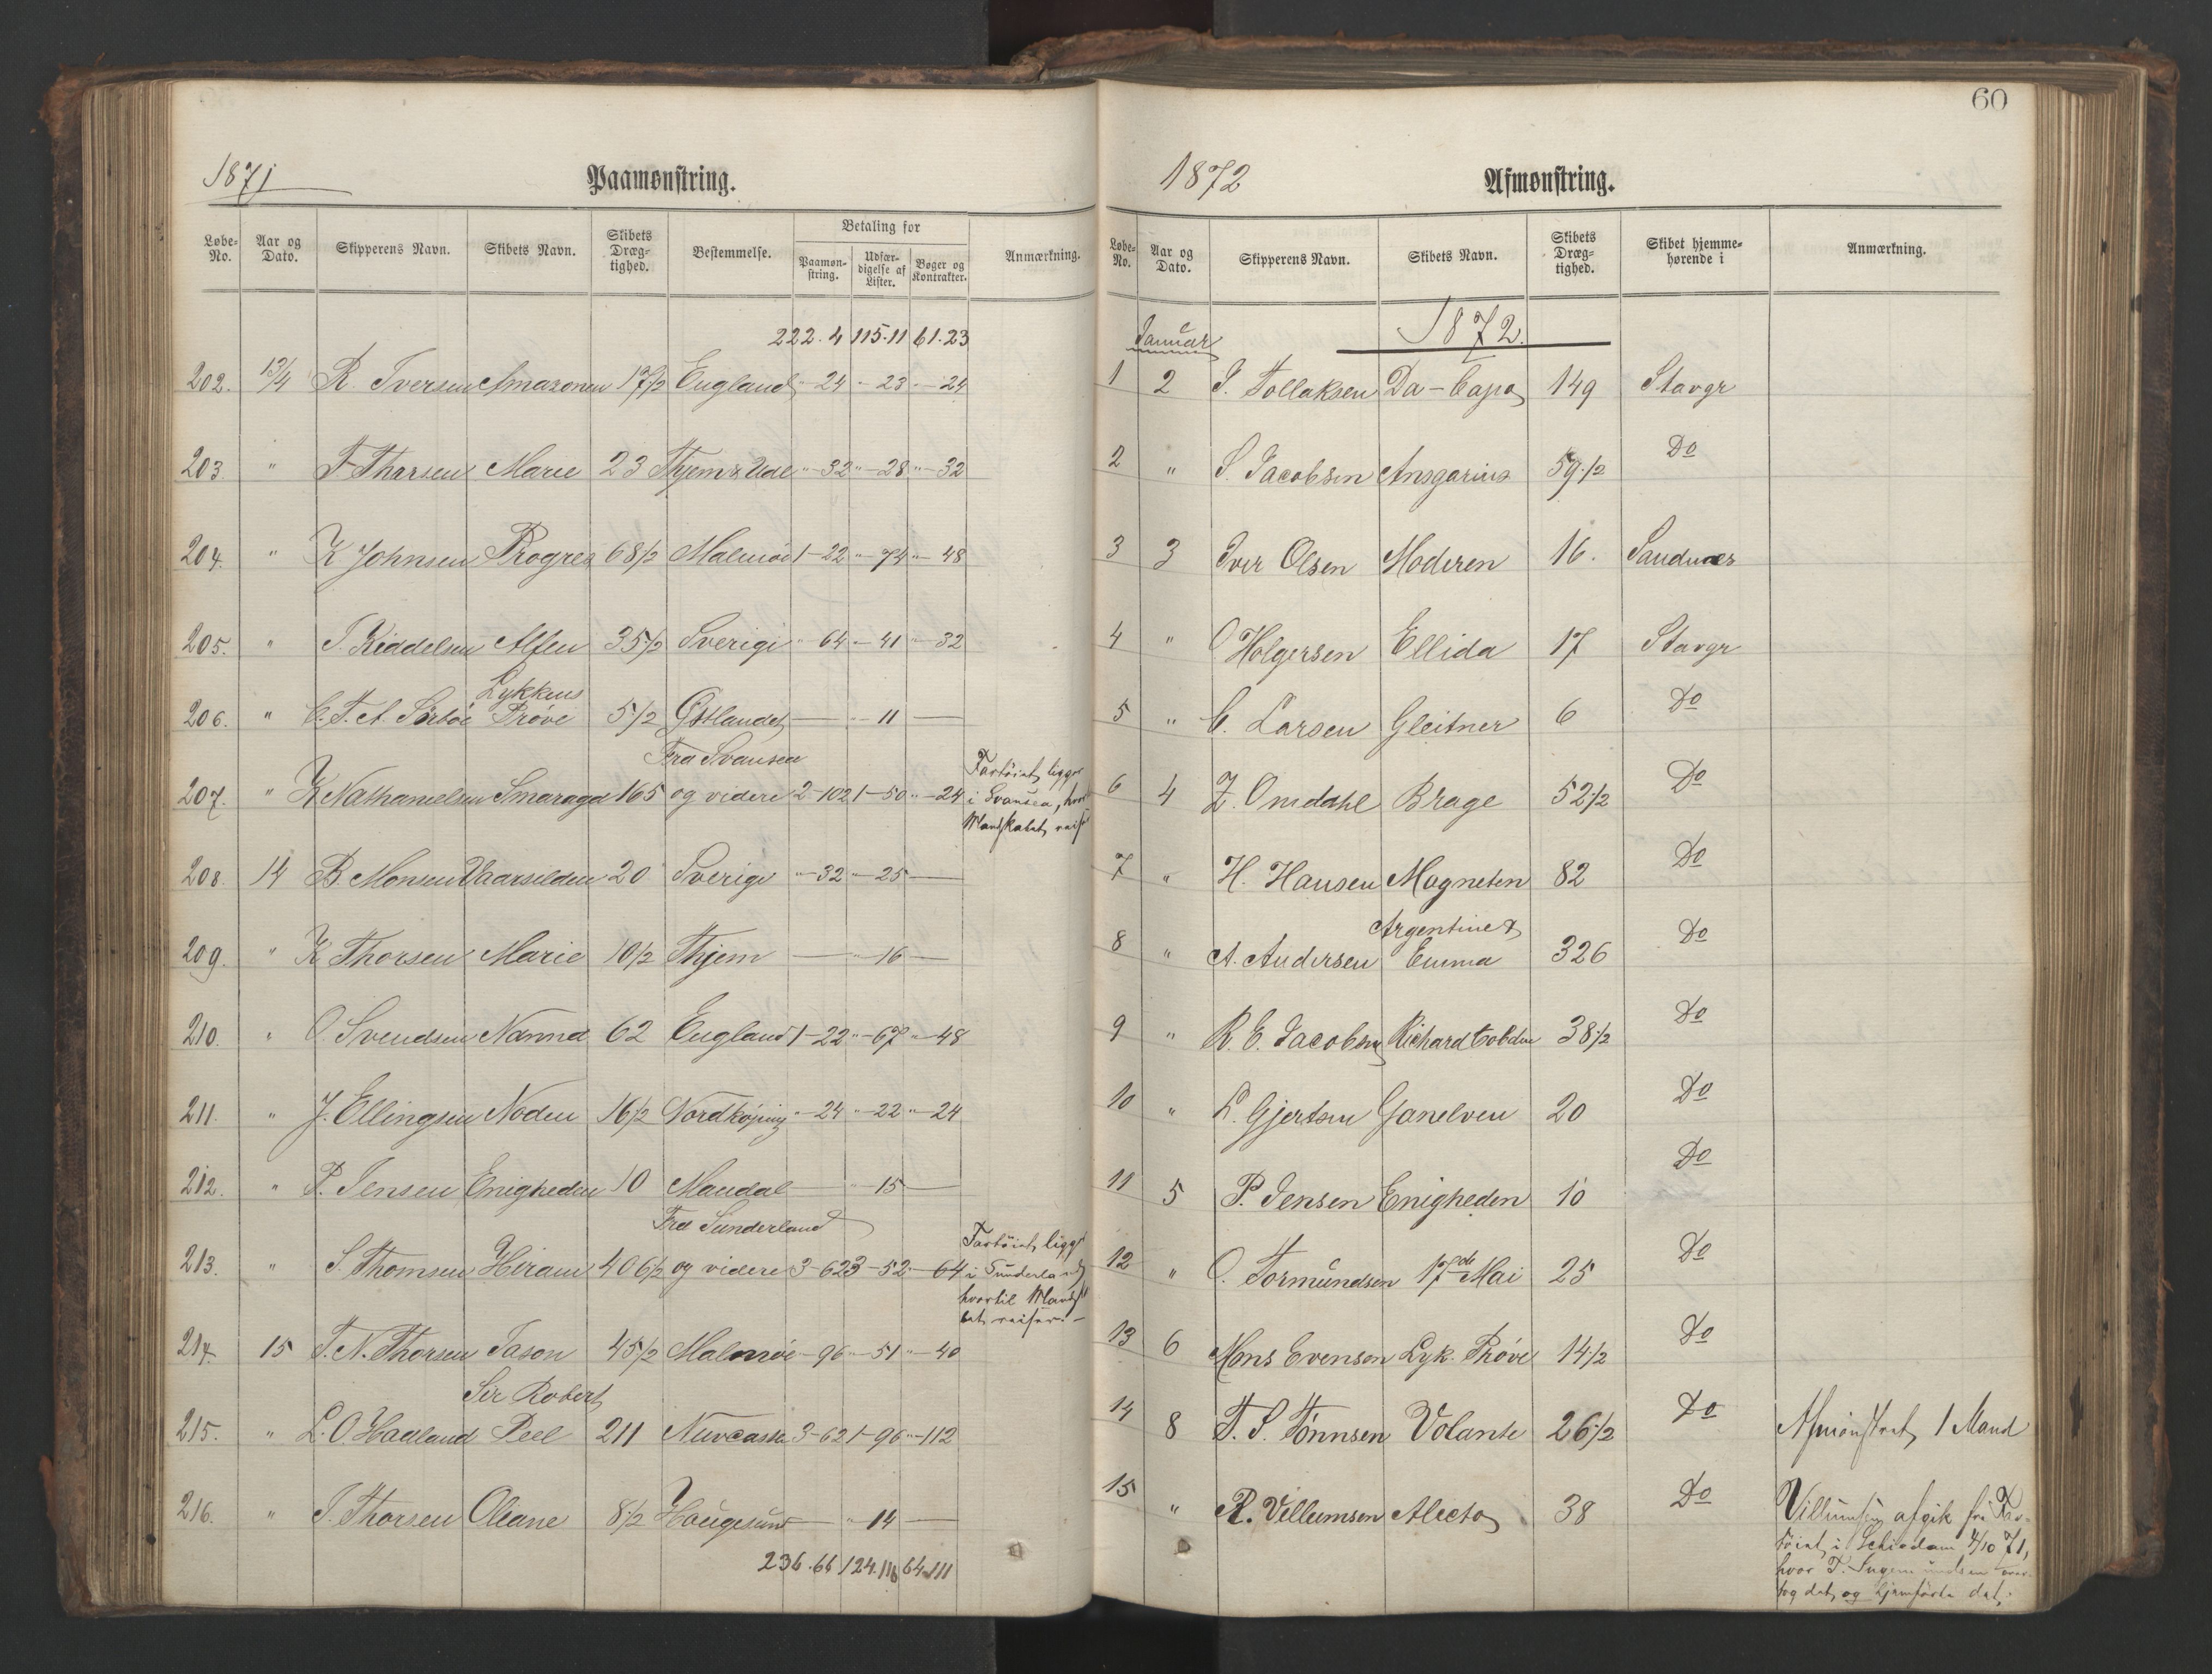 1871
Paamønstring.
Løbe-No. Aar og Dato. Skipperens Navn. Skibets Navn. Skibets Dræg-tighed. Bestemmelse. Betaling for Paamøn-string. Udfær-digelse af Lister. Bøger og Kontrakter. Anmærkning.
222.4 115.11 61.23
202. 13/4 R. Iversen Amazonen 17½ England "-24 "-23 "-24
203. " T Thorsen Marie 23 Hjem & Ude "-32 "-28 "-32
204. " K Johnsen Progres 68½ Malmöe 1-22 "-74 "-48
205. " T. Kiddelsen Alfen 35½ Sverige "-64 "-41 "-32
Lykkens
206. " C. T. A. Sörböe Pröve 5½ Østlandet — "-11 —
Fra Svansea
207. " K Nathanielsen Smaragd 165 og videre 2-102 1-50 "-24
Fartöiet ligger
i Svansea, hvor
Mandskabet reise
208. 14 B. Monsen Vaarsilden 20 Sverige "-32 "-25 —
209. " K Thorsen Marie 10½ Hjem — "-16 —
210. " O. Svendsen Nanna 62 England 1-22 "-67 "-48
211. " J. Ellingsen Noden 16½ Nordkøping "-24 "-22 "-24
212. " P. Jensen Enigheden 10 Mandal — "-15 —
Fra Sunderland
213. " S. Thomsen Hiram 406½ og videre 3-62 3-52 "-64
Fartöiet ligger
i Sunderland,
hvortil Mandsk
bet reiser. –
214. 15 T. N. Thorsen Jason 45½ Malmöe "-96 "-51 "-40
Sir Robert
215. " L. O. Haaland Peel 211 Newcastle 3-62 1-96 "-112
216. " T. Thorsen Oliane 8½ Haugesund — "-14 —
236.66 124.116 64.111
60
1872
Afmønstring.
Løbe-No. Aar og Dato. Skipperens Navn. Skibets Navn. Skibets Dræg-tighed. Skibet hjemme-hørende i Anmærkning.
Januar 1872.
1 2 I. Tollaksen Da-Capo 149 Stavgr
2 " S. Jacobsen Ansgarius 59½ Do
3 3 Iver Olsen Moderen 16. Sandnæs
4 " O Holgersen Ellida 17 Stavgr
5 " C. Larsen Gleitner 6 Do
6 4 Z. Omdahl Brage 52½ Do
7 " H. Hansen Magneten 82 Do
Argentine &
8 " A. Andersen Emma 326 Do
9 " R. E. Jacobsen Richard Cobden 38½ Do
10 " L. Gjertsen Ganelven 20 Do
11 5 P. Jensen Enigheden 10 Do
12 " O. Tormundsen 17de Mai 25 Do
13 6 Mons Evensen Lyk. Pröve 14½ Do
14 8 T. S. Tönnsen Volante 26½ Do Afmönstret 1 Mand
15 " R. Villumsen Alecto 38 Do
Villumsen afgik fra Far-
töiet i Schiedam 4/10 71,
hvor T. Ingemundsen over-
tog det, og hjemførte det,